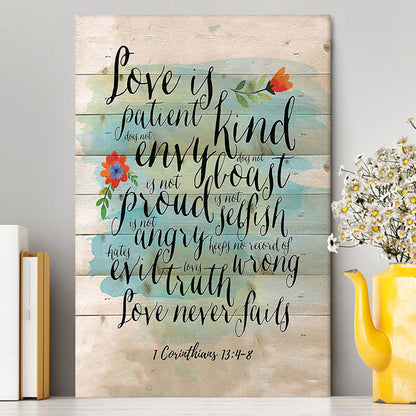 Love is
patient kind
does not envy does not boast
is not proud is not selfish
is not angry keeps no record of wrong
hates evil loves truth
Love never fails
1 Corinthians 13:4-8